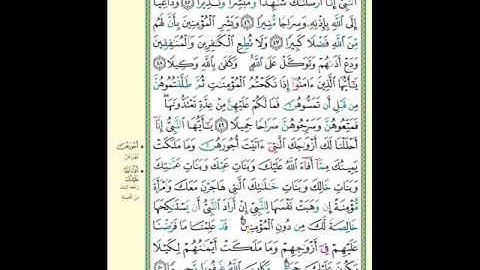 ٱلنَّبِىُّ إِنَّآ أَرْسَلْنَٰكَ شَٰهِدًا وَمُبَشِّرًا وَنَذِيرًا ٤٥ وَدَاعِيًا
إِلَى ٱللَّهِ بِإِذْنِهِۦ وَسِرَاجًا مُّنِيرًا ٤٦ وَبَشِّرِ ٱلْمُؤْمِنِينَ بِأَنَّ لَهُم
مِّنَ ٱللَّهِ فَضْلًا كَبِيرًا ٤٧ وَلَا تُطِعِ ٱلْكَٰفِرِينَ وَٱلْمُنَٰفِقِينَ
وَدَعْ أَذَىٰهُمْ وَتَوَكَّلْ عَلَى ٱللَّهِ وَكَفَىٰ بِٱللَّهِ وَكِيلًا ٤٨
يَٰٓأَيُّهَا ٱلَّذِينَ ءَامَنُوٓا۟ إِذَا نَكَحْتُمُ ٱلْمُؤْمِنَٰتِ ثُمَّ طَلَّقْتُمُوهُنَّ
مِن قَبْلِ أَن تَمَسُّوهُنَّ فَمَا لَكُمْ عَلَيْهِنَّ مِنْ عِدَّةٍ تَعْتَدُّونَهَا
فَمَتِّعُوهُنَّ وَسَرِّحُوهُنَّ سَرَاحًا جَمِيلًا ٤٩ يَٰٓأَيُّهَا ٱلنَّبِىُّ إِنَّآ
أَحْلَلْنَا لَكَ أَزْوَٰجَكَ ٱلَّٰتِىٓ ءَاتَيْتَ أُجُورَهُنَّ وَمَا مَلَكَتْ
يَمِينُكَ مِمَّآ أَفَآءَ ٱللَّهُ عَلَيْكَ وَبَنَاتِ عَمِّكَ وَبَنَاتِ عَمَّٰتِكَ
وَبَنَاتِ خَالِكَ وَبَنَاتِ خَٰلَٰتِكَ ٱلَّٰتِى هَاجَرْنَ مَعَكَ وَٱمْرَأَةً
مُّؤْمِنَةً إِن وَهَبَتْ نَفْسَهَا لِلنَّبِىِّ إِنْ أَرَادَ ٱلنَّبِىُّ أَن يَسْتَنكِحَهَا
خَالِصَةً لَّكَ مِن دُونِ ٱلْمُؤْمِنِينَ قَدْ عَلِمْنَا مَا فَرَضْنَا
عَلَيْهِمْ فِىٓ أَزْوَٰجِهِمْ وَمَا مَلَكَتْ أَيْمَٰنُهُمْ لِكَيْلَا
يَكُونَ عَلَيْكَ حَرَجٌ وَكَانَ ٱللَّهُ غَفُورًا رَّحِيمًا ٥٠
أجورهن